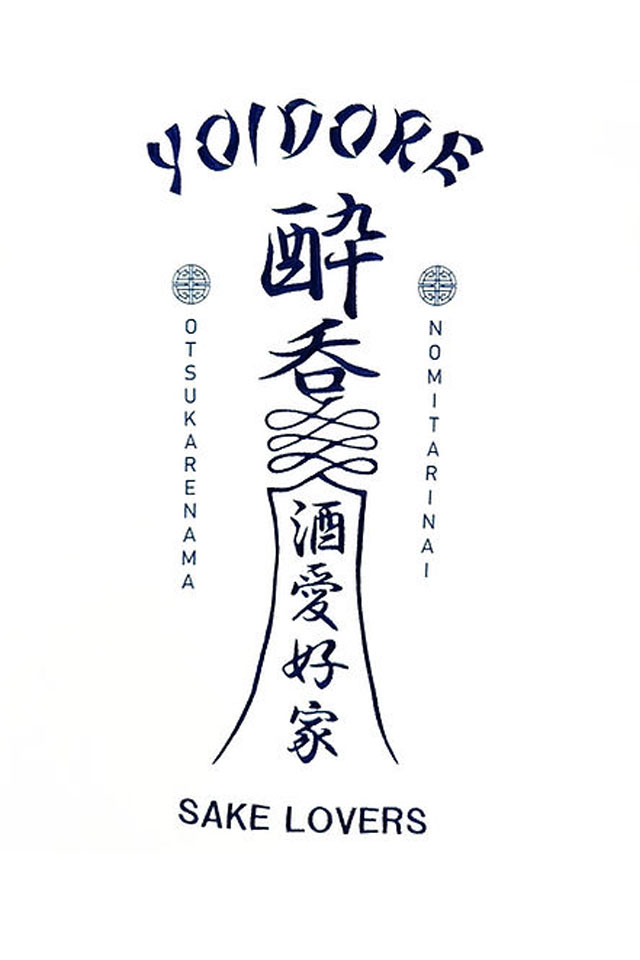 YOIDORE
酔呑
OTSUKARENAMA
NOMITARINAI
酒愛好家
SAKE LOVERS